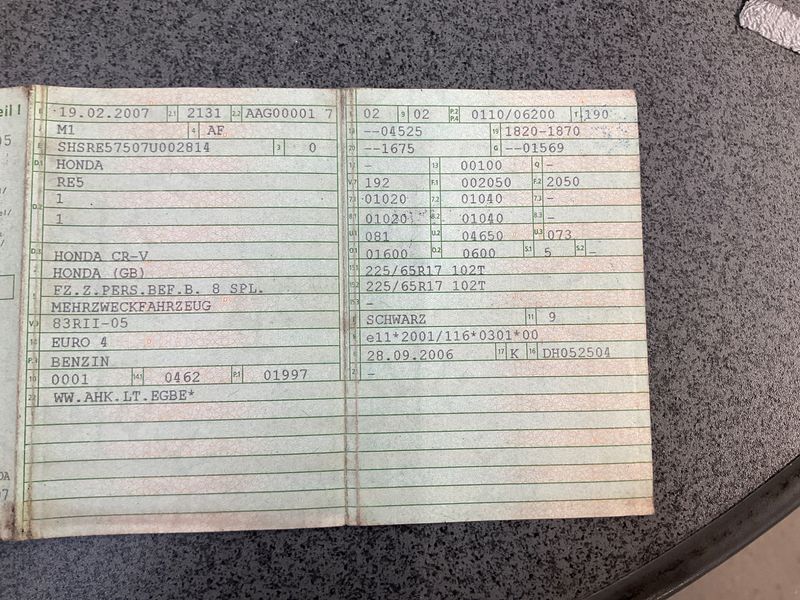 B 19.02.2007 2.1 2131 2.2 AAG00001 7
J M1 4 AF
E SHSRE57507U002814 3 0
D.1 HONDA
RE5
D.2 1
1
D.3 HONDA CR-V
2 HONDA (GB)
5 FZ.Z.PERS.BEF.B. 8 SPL.
MEHRZWECKFAHRZEUG
V.9 83RII-05
14 EURO 4
P.3 BENZIN
10 0001 14.1 0462 P.1 01997
22 WW.AHK.LT.EGBE*
L 02 9 02 P.2 P.4 0110/06200 T 190
18 --04525 19 1820-1870
20 --1675 G --01569
12 - 13 00100 Q -
V.7 192 F.1 002050 F.2 2050
7.1 01020 7.2 01040 7.3 -
8.1 01020 8.2 01040 8.3 -
U.1 081 U.2 04650 U.3 073
O.1 01600 O.2 0600 S.1 5 S.2 -
15.1 225/65R17 102T
15.2 225/65R17 102T
15.3 -
R SCHWARZ 11 9
K e11*2001/116*0301*00
6 28.09.2006 17 K 16 DH052504
21 -